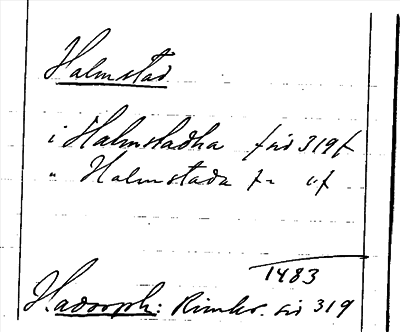 Halmstad
i Halmstadha sid 319
" Halmstada
1483
Hadorph: Rimkr. sid 319